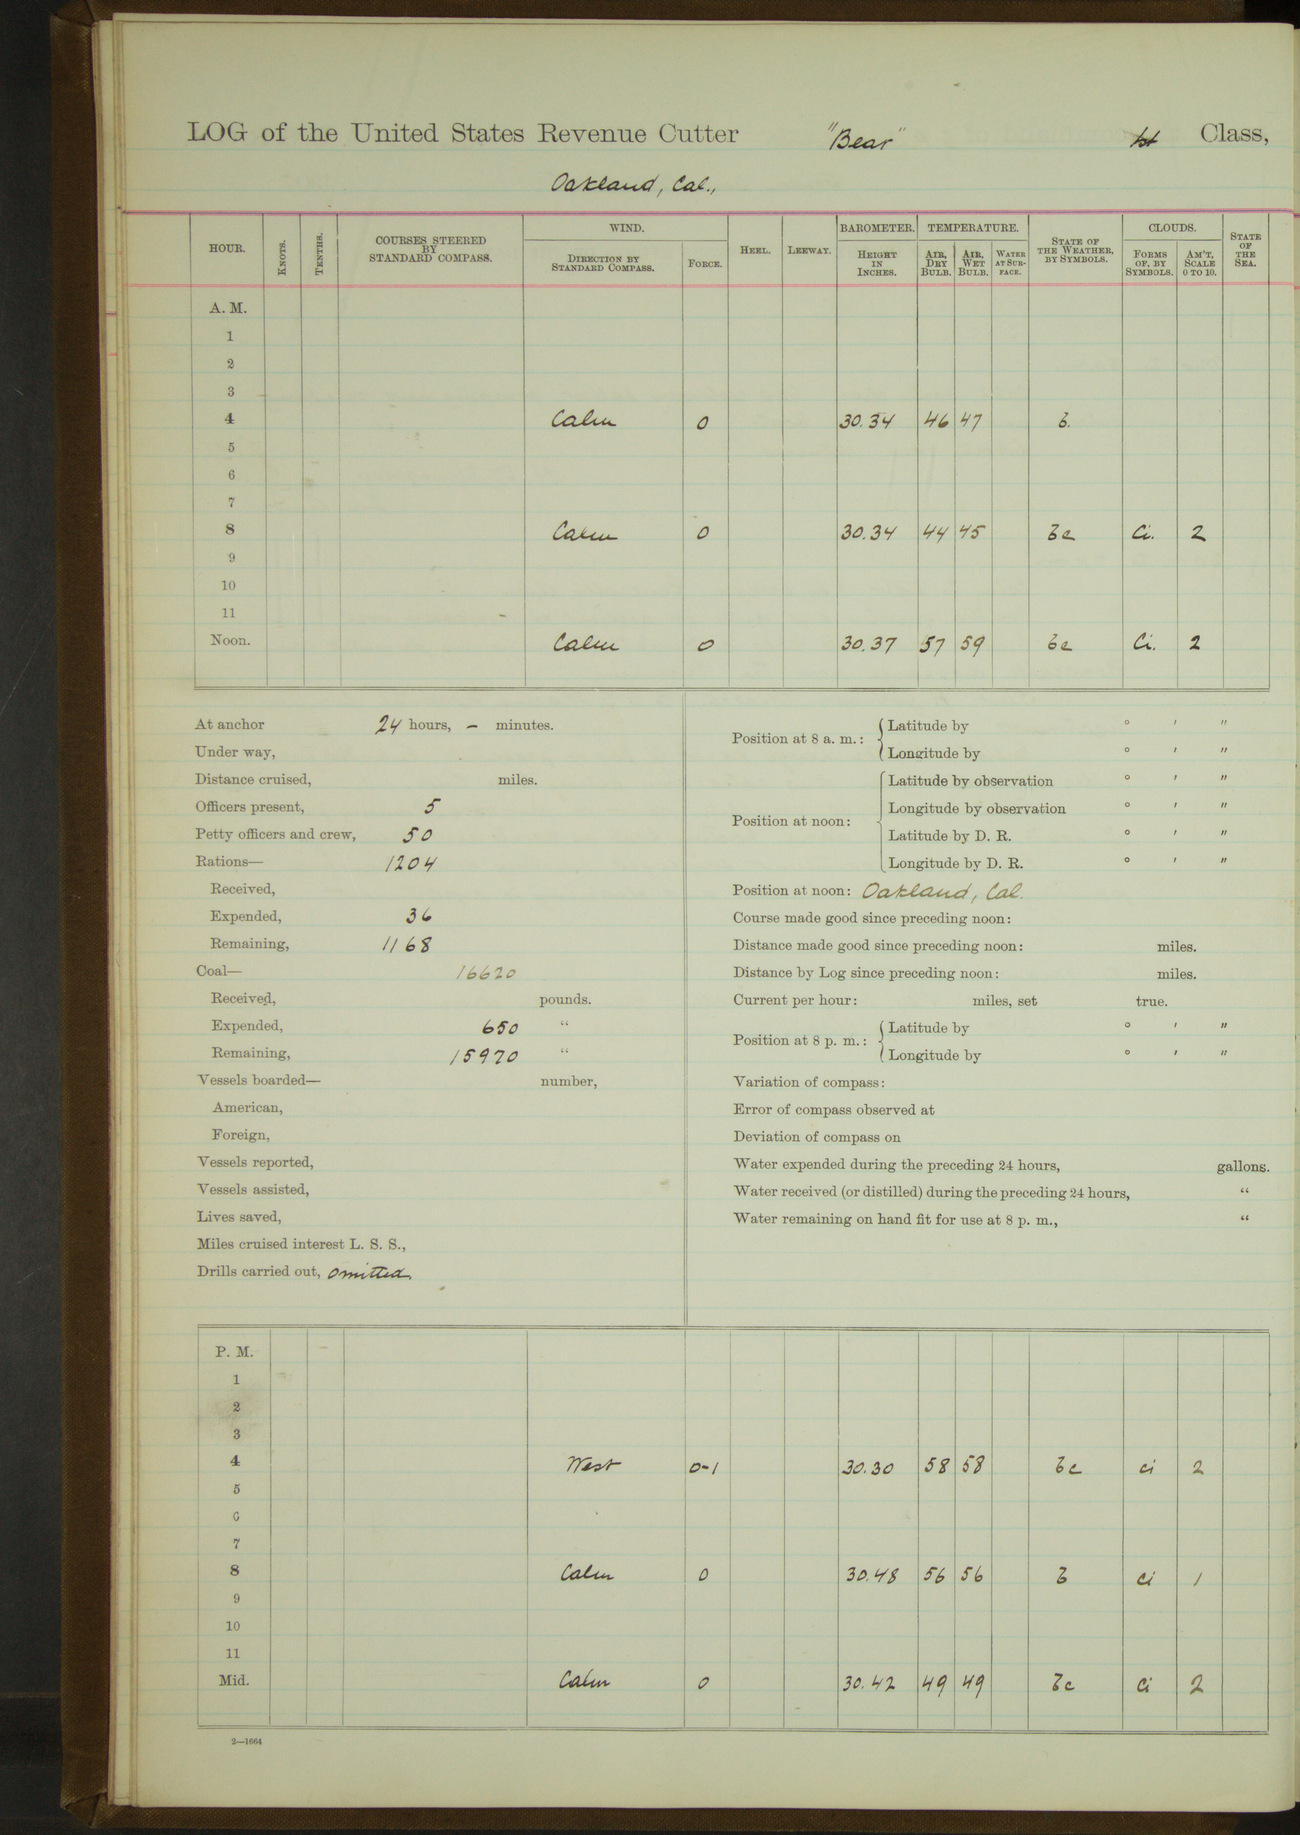 LOG of the United States Revenue Cutter "Bear" 1st Class,
Oakland, Cal.,
HOUR. KNOTS. TENTHS. COURSES STEERED BY STANDARD COMPASS. WIND. DIRECTION BY STANDARD COMPASS. FORCE. HEEL. LEEWAY. BAROMETER. HEIGHT IN INCHES. TEMPERATURE. AIR, DRY BULB. AIR, WET BULB. WATER AT SURFACE. STATE OF THE WEATHER, BY SYMBOLS. CLOUDS. FORMS OF, BY SYMBOLS. AM'T, SCALE 0 TO 10. STATE OF THE SEA.
A. M.
1
2
3
4 Calm 0 30.34 46 47 b.
5
6
7
8 Calm 0 30.34 44 45 bc Ci. 2
9
10
11
Noon. Calm 0 30.37 57 59 bc Ci. 2
At anchor 24 hours, – minutes.
Under way,
Distance cruised, miles.
Officers present, 5
Petty officers and crew, 50
Rations— 1204
Received,
Expended, 36
Remaining, 1168
Coal— 16620
Received, pounds.
Expended, 650 "
Remaining, 15970 "
Vessels boarded— number,
American,
Foreign,
Vessels reported,
Vessels assisted,
Lives saved,
Miles cruised interest L. S. S.,
Drills carried out, omitted.
Position at 8 a. m.: Latitude by ° ' "
Longitude by ° ' "
Position at noon: Latitude by observation ° ' "
Longitude by observation ° ' "
Latitude by D. R. ° ' "
Longitude by D. R. ° ' "
Position at noon: Oakland, Cal.
Course made good since preceding noon:
Distance made good since preceding noon: miles.
Distance by Log since preceding noon: miles.
Current per hour: miles, set true.
Position at 8 p. m.: Latitude by ° ' "
Longitude by ° ' "
Variation of compass:
Error of compass observed at
Deviation of compass on
Water expended during the preceding 24 hours, gallons.
Water received (or distilled) during the preceding 24 hours, "
Water remaining on hand fit for use at 8 p. m., "
P. M.
1
2
3
4 West 0-1 30.30 58 58 bc ci 2
5
6
7
8 Calm 0 30.48 56 56 b ci 1
9
10
11
Mid. Calm 0 30.42 49 49 bc ci 2
2—1664